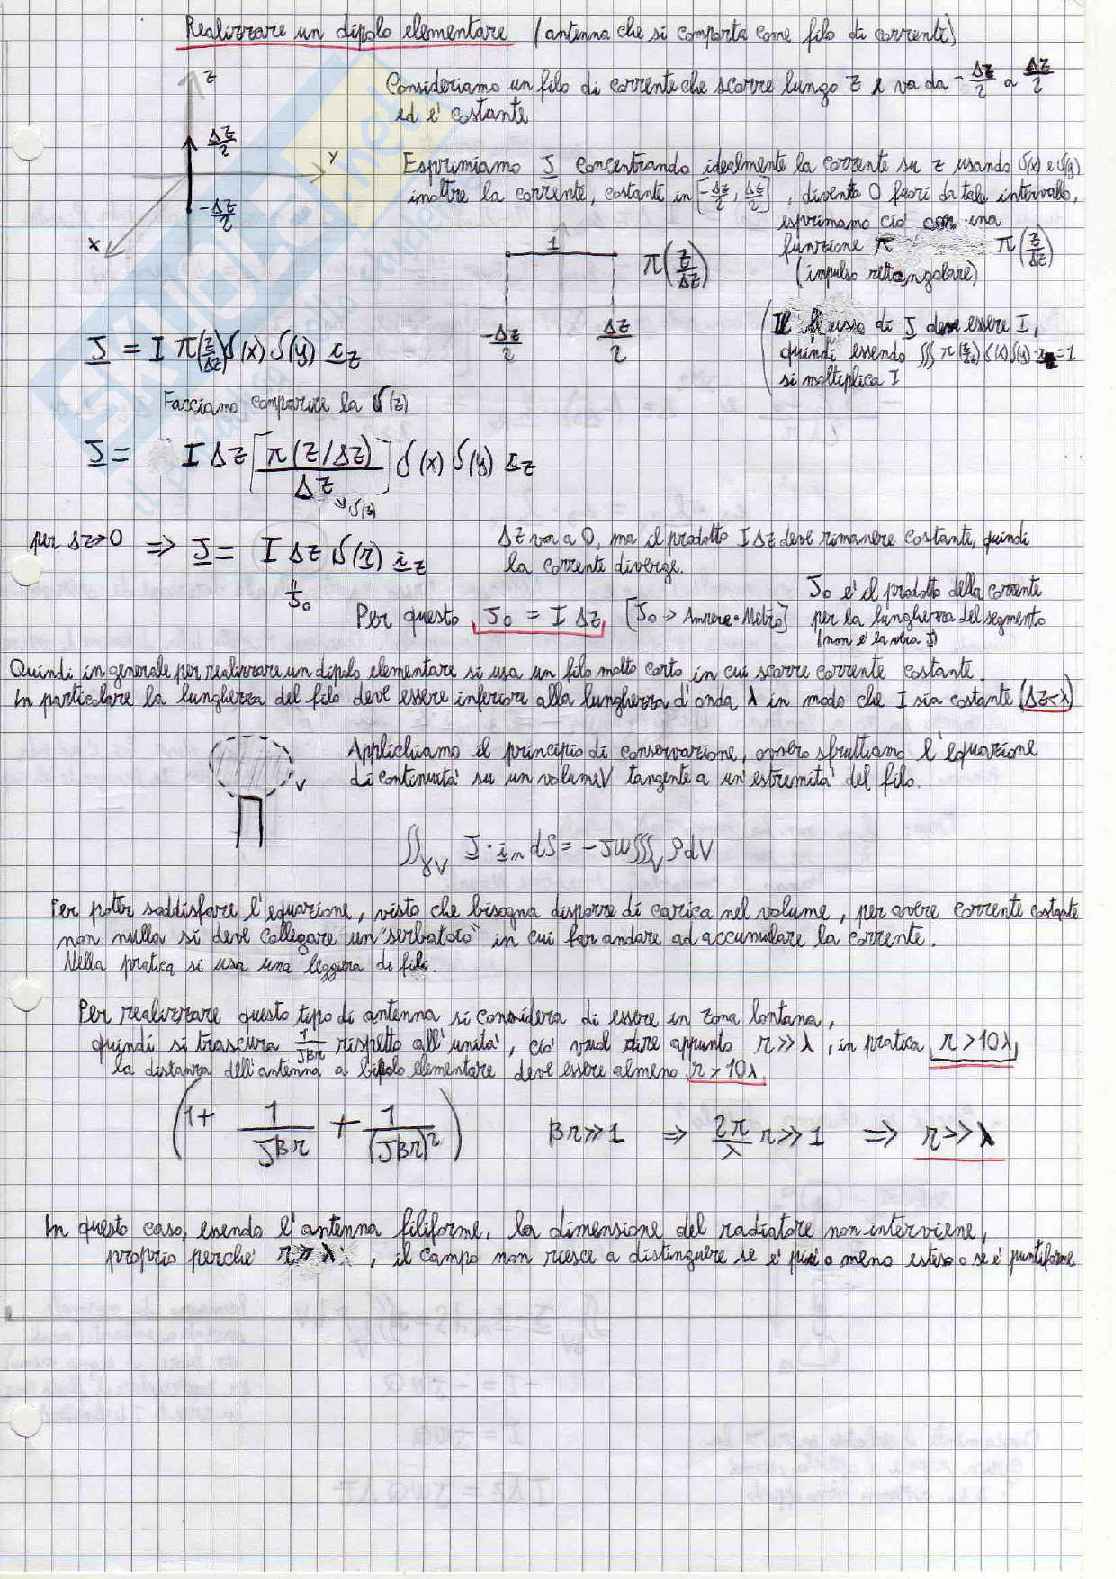 Realizzare un dipolo elementare (antenna che si comporta come filo di corrente)
Consideriamo un filo di corrente che scorre lungo z e va da -Δz/2 a Δz/2
ed e' costante
z
Δz/2
y
-Δz/2
x
Esprimiamo J concentrando idealmente la corrente su z usando δ(x) e δ(y)
inoltre la corrente, costante in [-Δz/2, Δz/2], diventa 0 fuori da tale intervallo,
esprimamo ciò con una
funzione π π(z/Δz)
(impulso rettangolare)
1
π(z/Δz)
-Δz/2 Δz/2
(Il flusso di J deve essere I,
quindi essendo ∭ π(z/Δz) δ(x) δ(y) · = 1
si moltiplica I
J = I π(z/Δz) δ(x) δ(y) i_z
Facciamo comparire la δ(z)
J = I Δz [π(z/Δz)/Δz] δ(x) δ(y) i_z
↘ δ(z)
per Δz→0 ⇒ J = I Δz δ(r) i_z
J₀
Δz va a 0, ma il prodotto I Δz deve rimanere costante, quindi
la corrente diverge.
Per questo J₀ = I Δz [J₀ → Ampere·Metro]
J₀ e' il prodotto della corrente
per la lunghezza del segmento
(non e' la J)
Quindi in generale per realizzare un dipolo elementare si usa un filo molto corto in cui scorre corrente costante.
In particolare la lunghezza del filo deve essere inferiore alla lunghezza d'onda λ in modo che I sia costante (Δz<λ)
V
Applichiamo il principio di conservazione, ovvero sfruttiamo l'equazione
di continuita' su un volume V tangente a un'estremita' del filo.
∬_∂V J · i_n dS = -jω∭_V ρ dV
Per poter soddisfare l'equazione, visto che bisogna disporre di carica nel volume, per avere corrente costante
non nulla si deve collegare un "serbatoio" in cui far andare ad accumulare la corrente.
Nella pratica si usa una di fili.
Per realizzare questo tipo di antenna si considera di essere in zona lontana,
quindi si trascura 1/jβr rispetto all'unita', ciò vuol dire appunto r≫λ, in pratica r>10λ,
la distanza dell'antenna a bipolo elementare deve essere almeno r>10λ.
(1+ 1/jβr + 1/(jβr)²) βr≫1 ⇒ 2π/λ r≫1 ⇒ r≫λ
In questo caso, essendo l'antenna filiforme, la dimensione del radiatore non interviene,
proprio perche' r≫λ, il campo non riesce a distinguere se e' più o meno esteso o se e' puntiforme